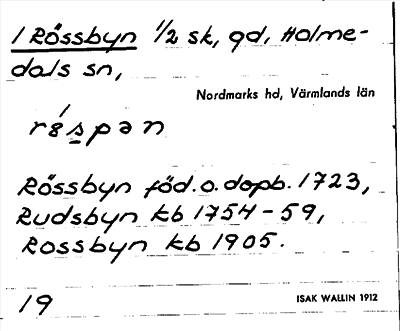 1 Rössbyn 1/2 sk, gd, Holme-
dals sn,
Nordmarks hd, Värmlands län
Rössbyn föd.o.dopb. 1723,
Rudsbyn kb 1754-59,
Rossbyn kb 1905.
19
ISAK WALLIN 1912